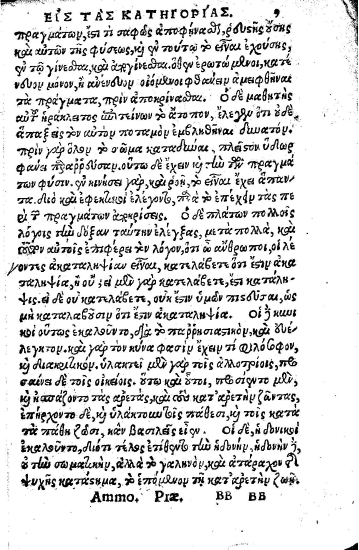 ΕΙΣ ΤΑΣ ΚΑΤΗΓΟΡΙΑΣ. 9
πραγμάτων, ἔστι τι σαφῶς ἀποφήνασθαι, ῥεούσης
καὶ αὐτῶν τῆς φύσεως, καὶ ἐν τούτῳ τὸ εἶναι ἐχούσης,
ἐν τῷ γίνεσθαι καὶ ἀπογίνεσθαι. ὅθεν ἐρωτώμενοι, κατέ
νευον μόνον, ἢ ἀνένευον οἰόμενοι φθάνειν ἀμειφθῆναι
τὰ πράγματα, πρὶν ἀποκρίνεσθαι. Ὁ δὲ μαθητὴς
αὐτοῦ ἡράκλειτος ἐπιτείνων τὸ ἄτοπον, ἔλεγεν ὅτι οὐδὲ
ἅπαξ εἰς τὸν αὐτὸν ποταμὸν ἐμβληθῆναι δυνατόν.
πρὶν γὰρ ὅλον τὸ σῶμα καταδῦναι, πλεῖστον ὕδωρ
φθάνει παραρρεῦσαν. οὕτω δὲ ἔχειν καὶ τὴν τῶν πραγμά
των φύσιν. ἐν κινήσει γὰρ, καὶ ῥοῇ, τὸ εἶναι ἔχει ἅπαν
τα. διὸ καὶ ἐφεκτικοὶ ἐλέγοντο, διὰ τὸ ἐπέχειν τὰς πε
ρὶ τῶν πραγμάτων ἀποκρίσεις. Ὁ δὲ πλάτων πολλοῖς
λόγοις τὴν δόξαν ταύτην ἐλέγξας, μετὰ πολλὰ, καὶ
τοῦτον αὐτοῖς ἐπιφέρει τὸν λόγον, ὅτι ὦ ἄνθρωποι, οἱ λέ
γοντες ἀκαταληψίαν εἶναι, κατελάβετε ὅτι ἔστιν ἀκα
ταληψία, ἢ οὔ; εἰ μὲν γὰρ κατελάβετε, ἔστι κατάλη
ψις. εἰ δὲ οὐ κατελάβετε, οὐκ ἔστιν ὑμῖν πιστεῦσαι, ὡς
μὴ καταλαβοῦσιν ὅτι ἔστιν ἀκαταληψία. Οἱ δὲ κυνι
κοὶ οὕτως ἐκαλοῦντο, διὰ τὸ παρρησιαστικὸν, καὶ
καὶ γὰρ τὸν κύνα φασὶν ἔχειν τὶ φιλόσοφον,
καὶ διακριτικόν. ὑλακτεῖ μὲν γὰρ τοῖς ἀλλοτρίοις,
σαίνει δὲ τοῖς οἰκείοις. οὕτω καὶ οὗτοι,
καὶ ἠσπάζοντο τὰς ἀρετὰς, καὶ τοὺς κατ' ἀρετὴν ζῶντας,
καὶ τοῖς κατὰ
τὰ πάθη ζῶσι, κἂν βασιλεῖς εἶεν. Οἱ δὲ, ἡδονικοὶ
ἐκαλοῦντο, διότι τέλος ἐτίθεντο τὴν ἡδονήν, ἡδονὴν δὲ,
οὐ τὴν σωματικὴν, ἀλλὰ τὸ γαληνὸν, καὶ ἀτάραχον τῆς
ψυχῆς κατάστημα, τὸ ἑπόμενον τῇ κατ' ἀρετὴν ζωῇ.
Ammo. Præ. BB BB